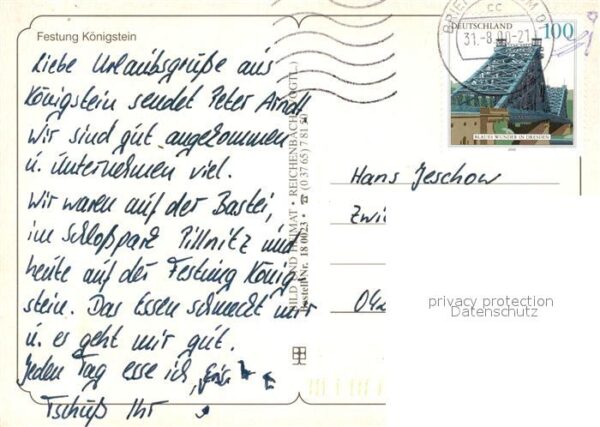 Festung Königstein
Liebe Urlaubsgrüße aus
Königstein sendet Peter Arndt
Wir sind gut angekommen
u. unternehmen viel.
Wir waren auf der Bastei,
im Schloßpark Pillnitz und
heute auf der Festung König
stein. Das Essen schmeckt mir
u. es geht mir gut.
Jeden Tag esse ich
Tschüß Ihr
BILD UND HEIMAT • REICHENBACH (VOGTL.)
Bestell-Nr. 18 0023 • ☎ (0 37 65) 7 81 50
DEUTSCHLAND 100
BLAUES WUNDER IN DRESDEN
2000
CC
31.-8.00-21
Hans Jeschow
privacy protection
Datenschutz